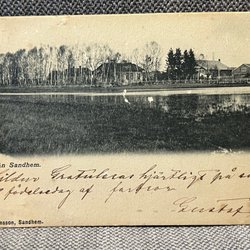 in Sandhem.
Gratuleras hjärtligt på
födelsedag af farbror
Gustaf
nsson, Sandhem.